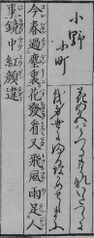 小野
小町
花の色はうつりにけりないたつらに
我身世にふるなかめせしまに
今春過塵裏花發看又飛風雨足
事鏡中紅顔違